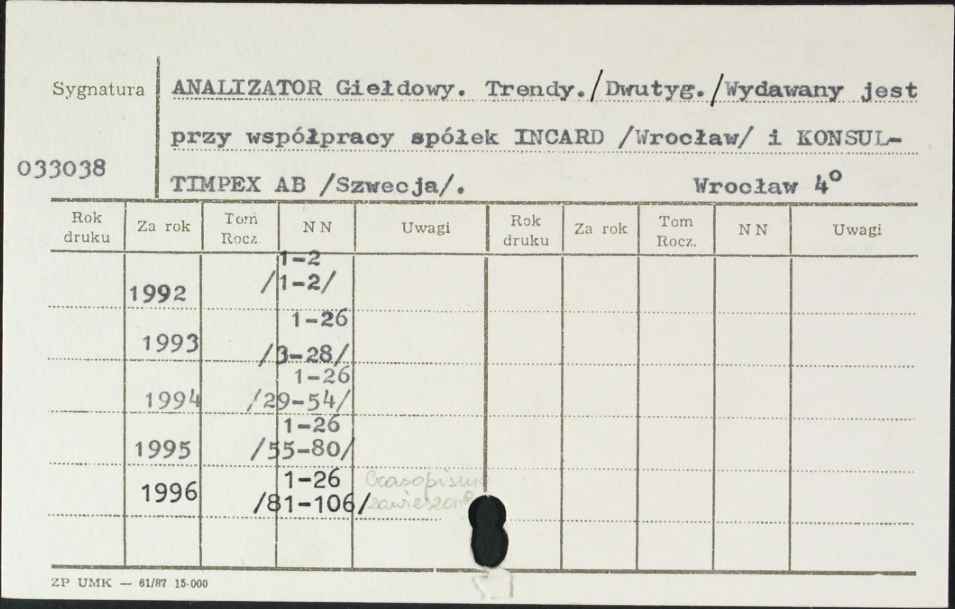 Sygnatura ANALIZATOR Giełdowy. Trendy./Dwutyg./Wydawany jest
przy współpracy spółek INCARD /Wrocław/ i KONSUL-
033038
TIMPEX AB /Szwecja/. Wrocław 4°
Rok druku Za rok Tom Rocz. NN Uwagi Rok druku Za rok Tom Rocz. NN Uwagi
1-2
1992 /1-2/
1-26
1993 /3-28/
1-26
1994 /29-54/
1-26
1995 /55-80/
1-26 Czasopismo
1996 /81-106/ zawieszone
ZP UMK — 61/87 15-000